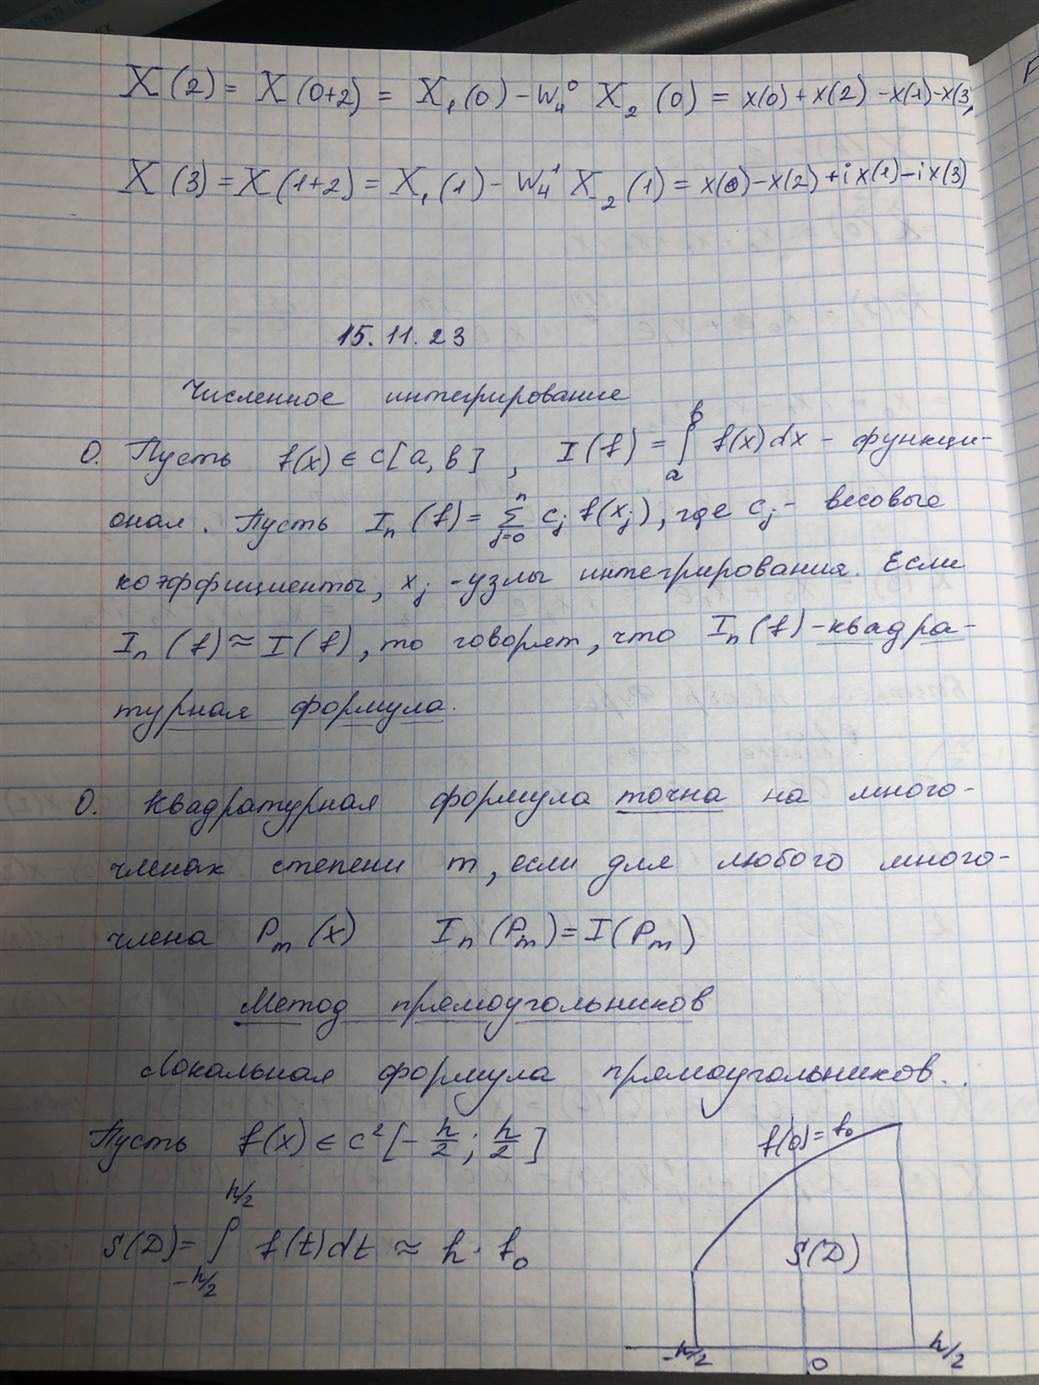 X(2) = X(0+2) = X₁(0) - W₄⁰ X₂(0) = x(0) + x(2) - x(1) - x(3)
X(3) = X(1+2) = X₁(1) - W₄¹ X₂(1) = x(0) - x(2) + i x(1) - i x(3)
15.11.23
Численное интегрирование
О. Пусть f(x) ∈ C[a, b], I(f) = ∫ₐᵇ f(x)dx - функци-
онал. Пусть Iₙ(f) = Σⱼ₌₀ⁿ cⱼ f(xⱼ), где cⱼ - весовые
коэффициенты, xⱼ - узлы интегрирования. Если
Iₙ(f) ≈ I(f), то говорят, что Iₙ(f) - квадра-
турная формула.
О. Квадратурная формула точна на много-
членах степени m, если для любого много-
члена Pₘ(x) Iₙ(Pₘ) = I(Pₘ)
Метод прямоугольников
Локальная формула прямоугольников..
Пусть f(x) ∈ C²[-h/2; h/2]
f(0) = f₀
S(D) = ∫₋ₕ/₂^h/2 f(t)dt ≈ h · f₀
S(D)
-h/2 0 h/2